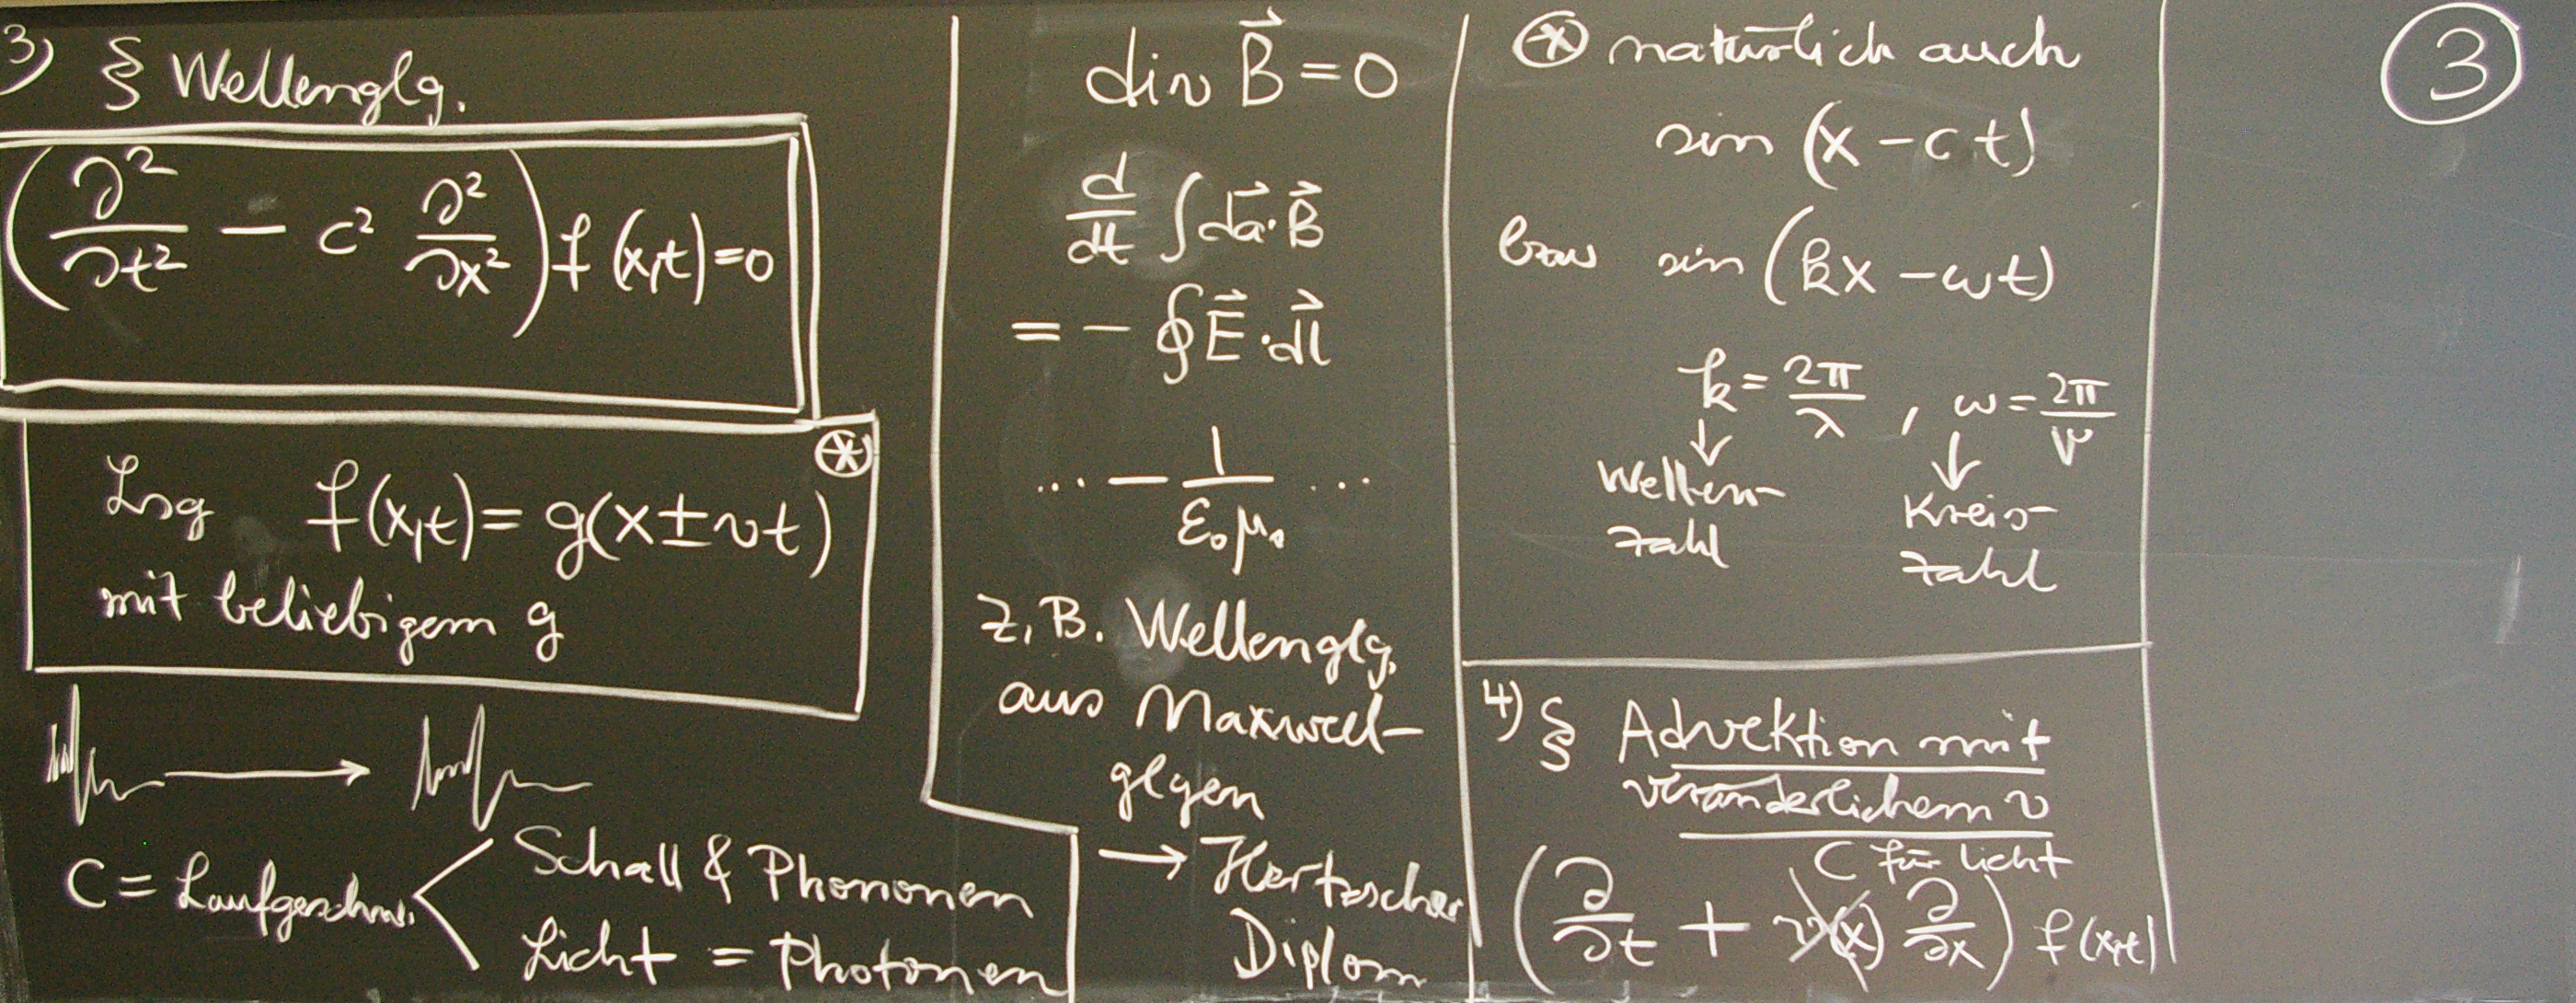 3) § Wellenglg.
(∂²/∂t² − c² ∂²/∂x²) f(x,t)=0
⊛
Lsg f(x,t) = g(x±vt)
mit beliebigem g
C = Laufgeschw. < Schall & Phononen
Licht = Photonen
div B⃗ = 0
d/dt ∫ da⃗·B⃗
= − ∮ E⃗·dl⃗
... − 1/(ε₀μ₀) ...
z.B. Wellenglg.
aus Maxwell-
glgen
→ Hertzscher
Diplom
⊛ natürlich auch
sin (x − ct)
bzw sin (kx − ωt)
k = 2π/λ , ω = 2π/ν
↓ ↓
Wellen-
zahl
Kreis-
zahl
4) § Advektion mit
veränderlichem v
c für Licht
(∂/∂t + v(x) ∂/∂x) f(x,t)
3